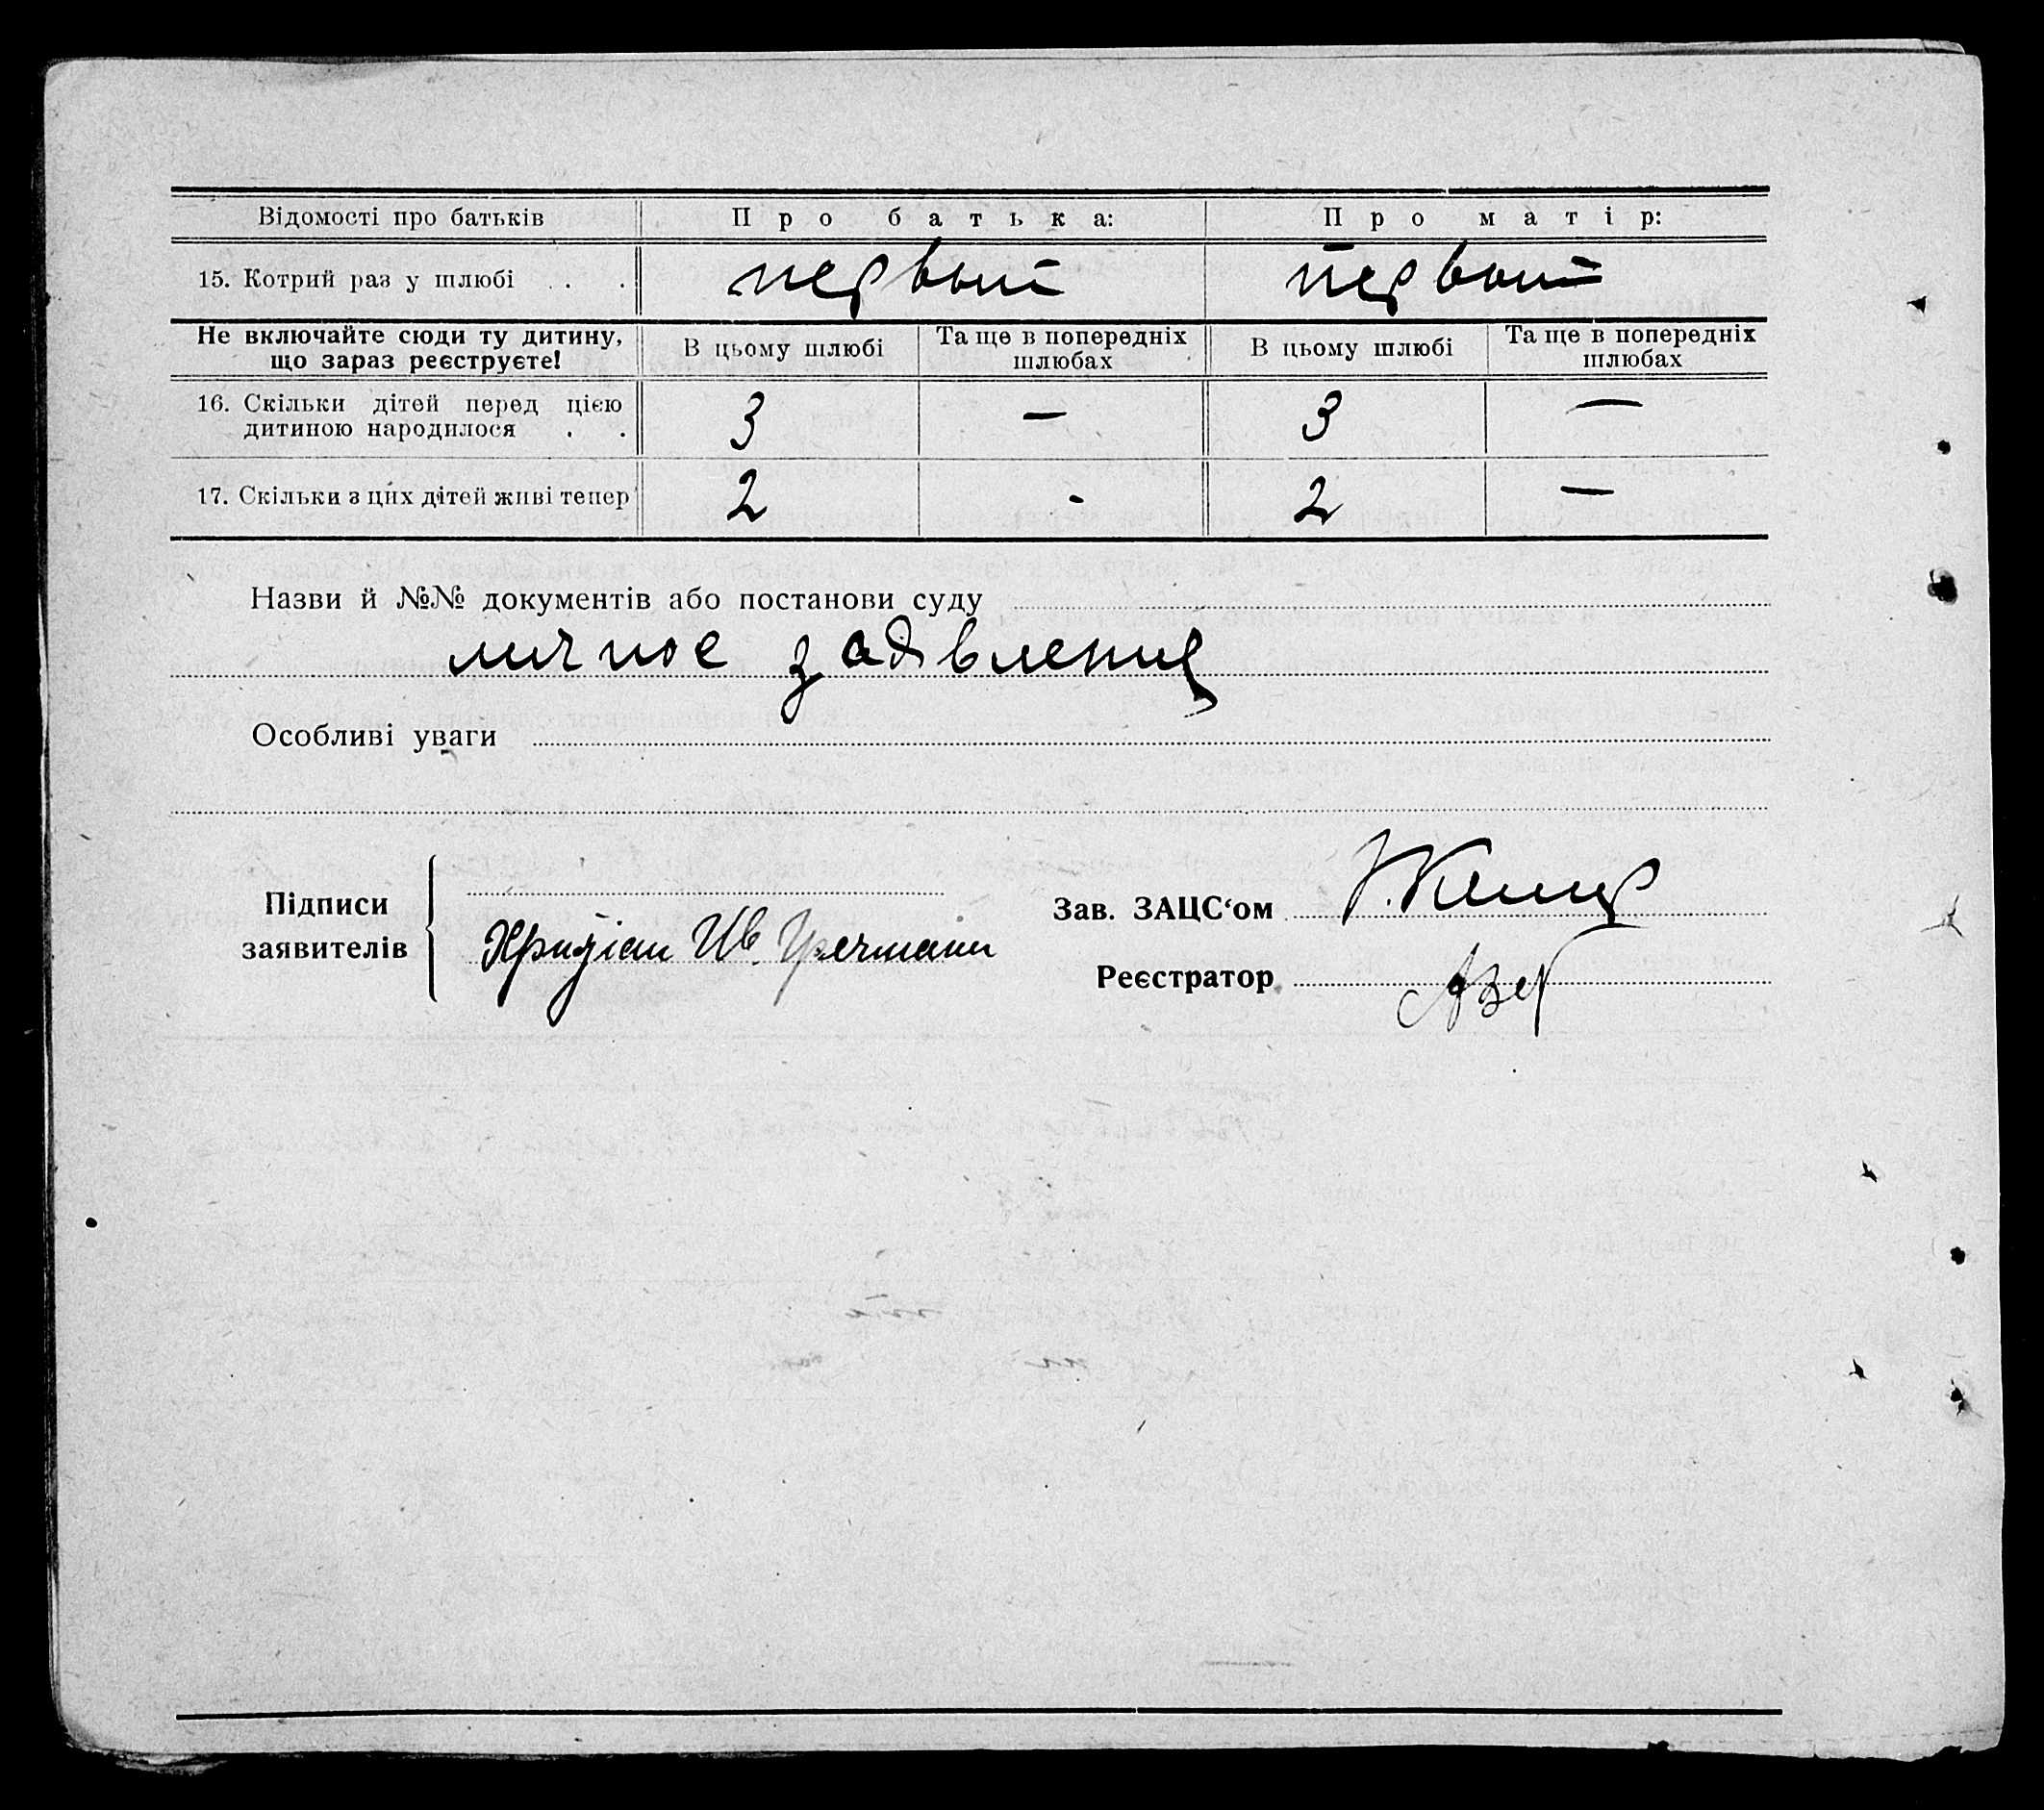 Відомості про батьків Про батька: Про матір:
15. Котрий раз у шлюбі . . . первый первый
Не включайте сюди ту дитину, що зараз реєструєте! В цьому шлюбі Та ще в попередніх шлюбах В цьому шлюбі Та ще в попередніх шлюбах
16. Скільки дітей перед цією
дитиною народилося . . 3 — 3 —
17. Скільки з цих дітей живі тепер 2 - 2 —
Назви й №№ документів або постанови суду
личное заявление
Особливі уваги
Підписи
заявителів
Ив.
Зав. ЗАЦС‘ом
Реєстратор